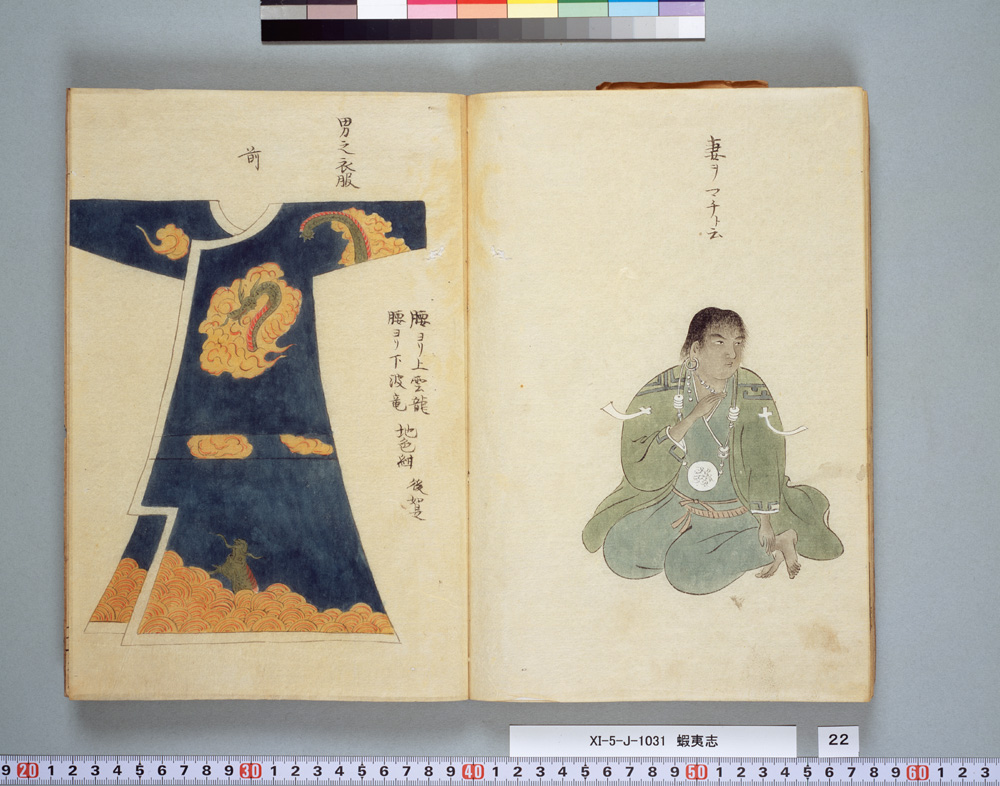 妻ヲマチト云
男之衣服
前
腰ヨリ上雲龍
腰ヨリ下波竜 地色紺 後如是
XI-5-J-1031 蝦夷志
22
9 20 1 2 3 4 5 6 7 8 9 30 1 2 3 4 5 6 7 8 9 40 1 2 3 4 5 6 7 8 9 50 1 2 3 4 5 6 7 8 9 60 1 2 3